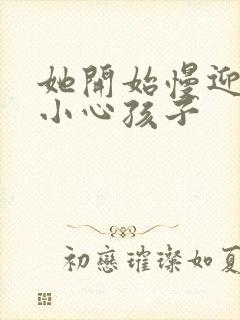 她開始慢迎
小心孩子
初戀璀璨如夏